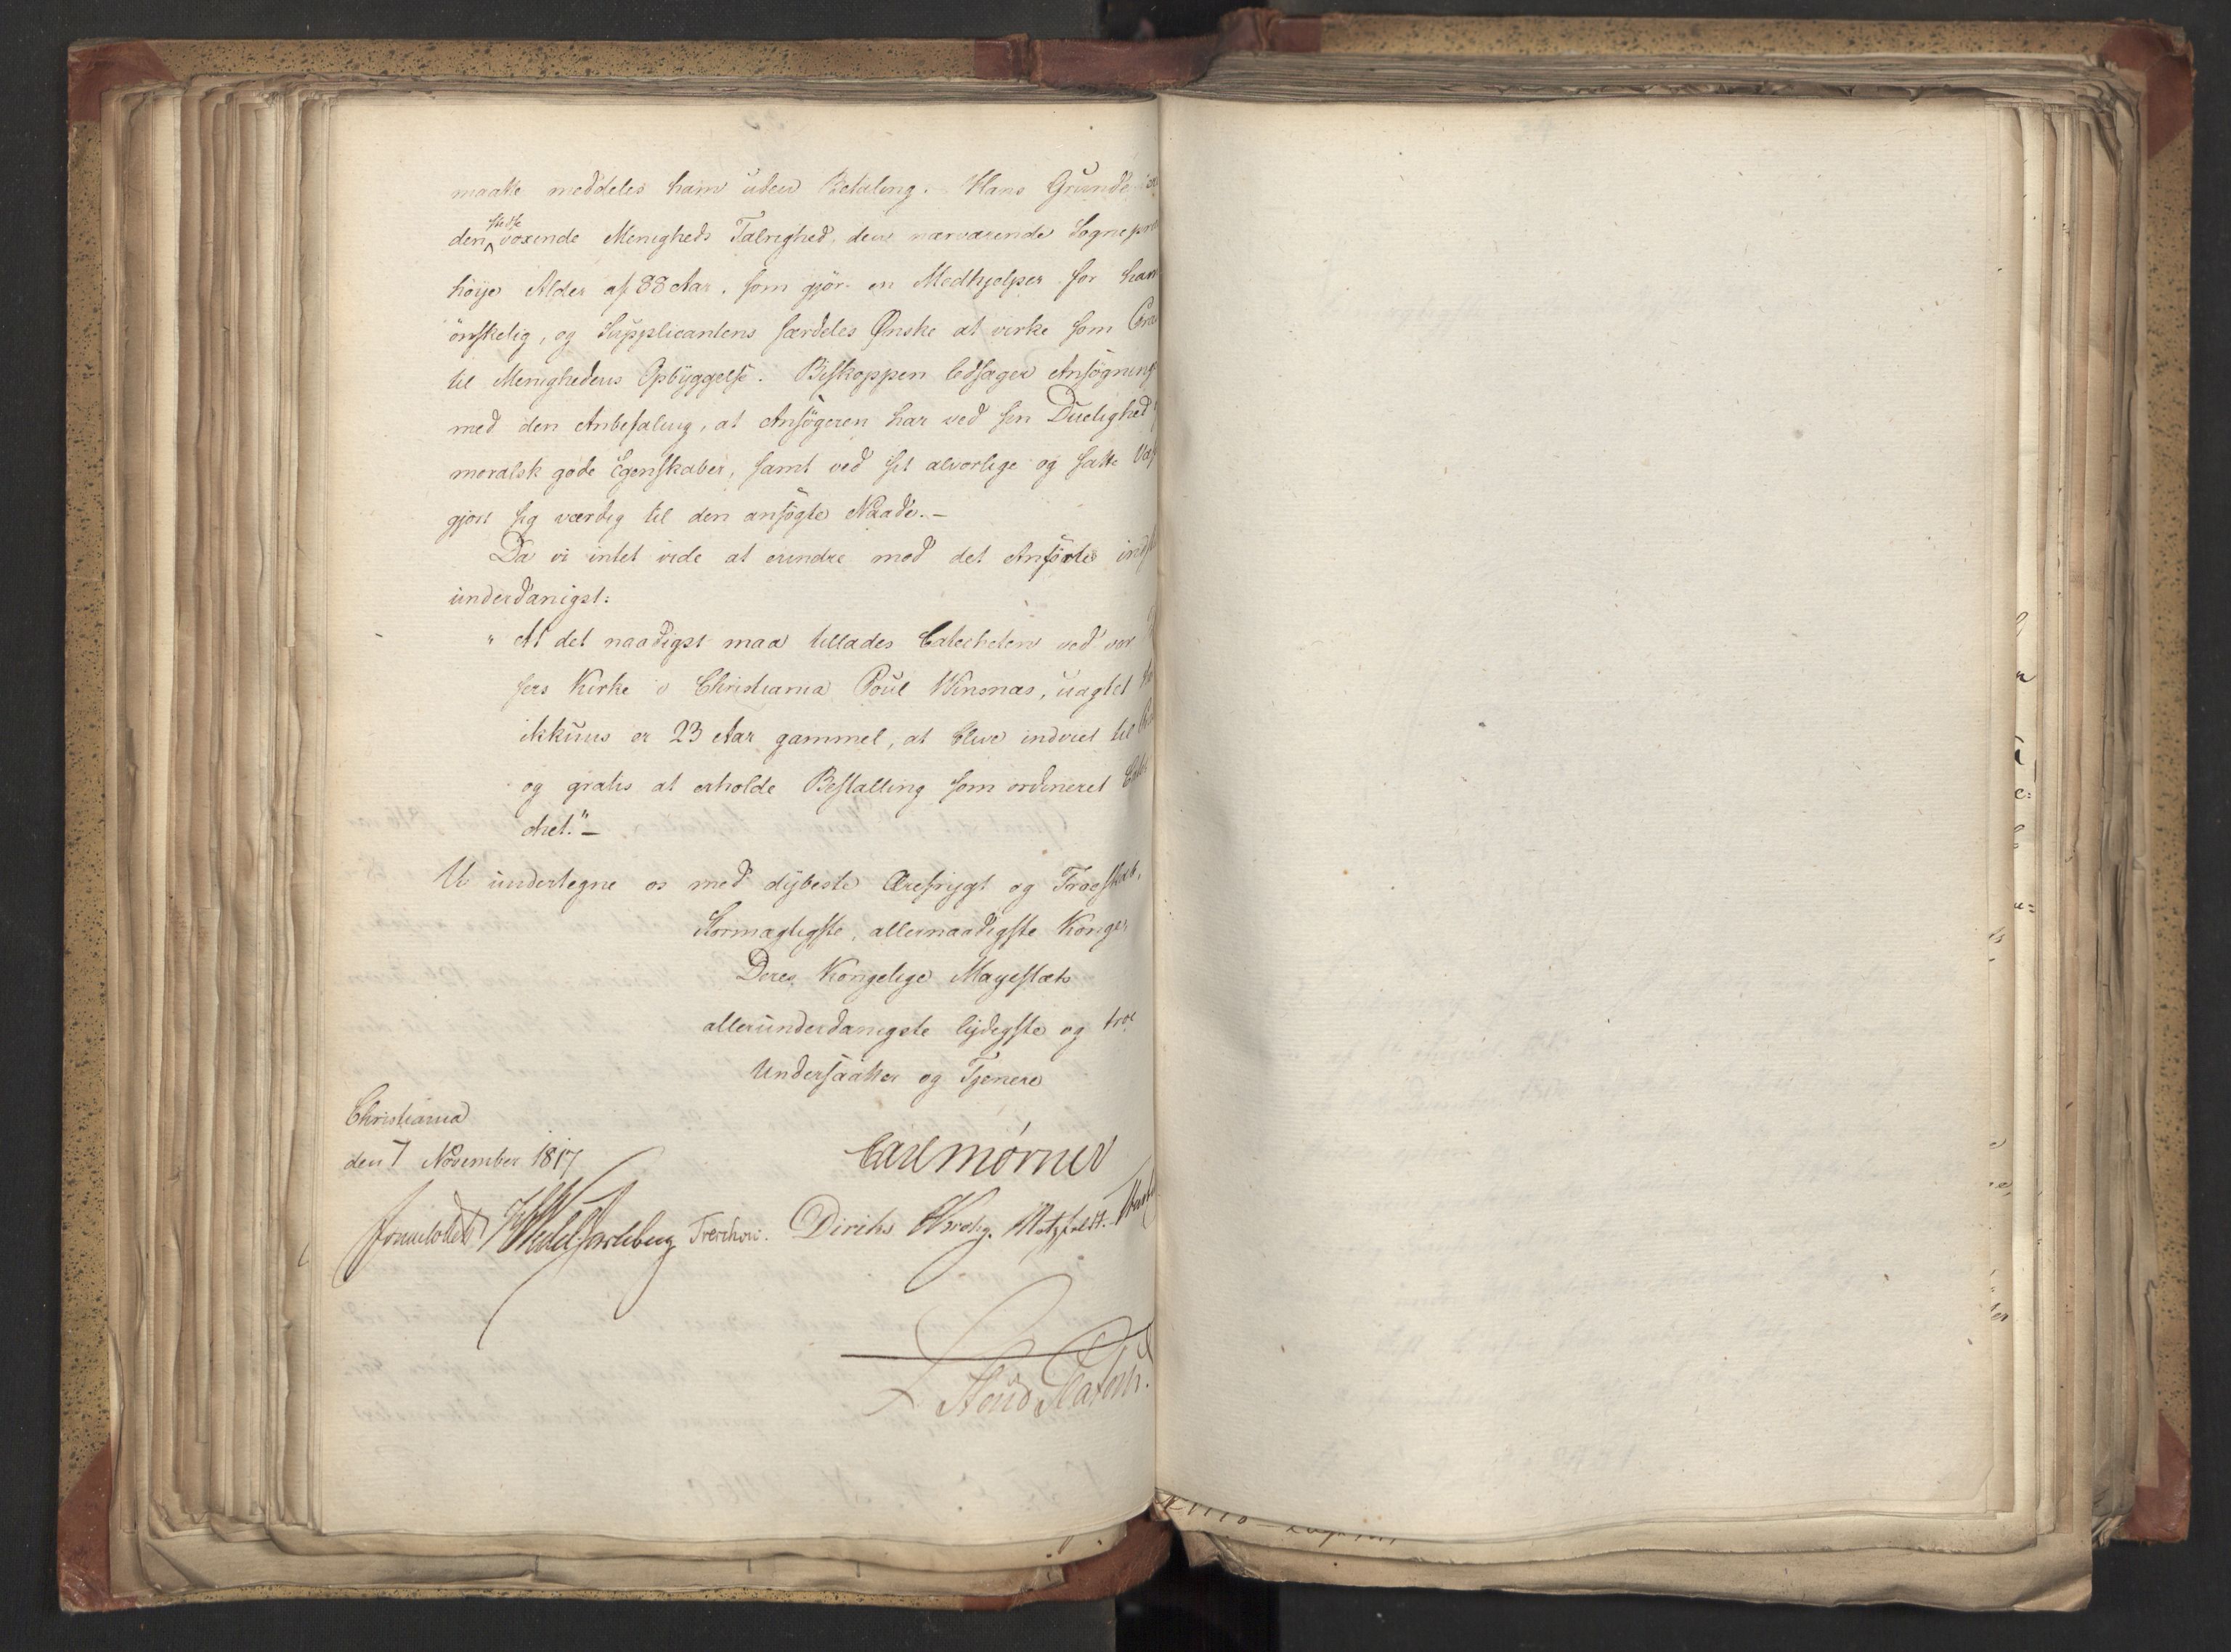 maatte meddeles ham uden Betaling. Hans Grunde
den stedse voxende Menigheds Talrighed, den nærværende Sognepr
høye Alder af 88 Aar, som gjør en Medhjelper for ham
ønskelig, og Supplicantens særdeles Ønske at virke som
til Menighedens Opbyggelse. Biskoppen ledsager Ansøgning
med den Anbefaling, at Ansøgeren har ved sin Duelighed
moralsk gode Egenskaber, samt ved sit alvorlige og satte
gjort sig værdig til den ansøgte Naade.-
Da vi intet vide at erindre mod det Anførte
underdanigst:
" At det naadigst maa tillades Catecheten ved vor
sers Kirke i Christiania Poul Winsnæs, uagtet
ikkuns er 23 Aar gammel, at blive indviet til
og gratis at erholde Bestalling som ordineret
chet."-
Vi undertegne os med dybeste Ærefrygt og Troeskab,
Stormægtigste, allernaadigste Konge,
Deres Kongelige Mayestæts
allerunderdanigste lydigste og troe
Undersaatter og Tjenere
Christiania
den 7 November 1817
Carl Mörner
Sommerhielm Wedel Jarlsberg Treschow. Diriks Krogh. Motzfeldt.